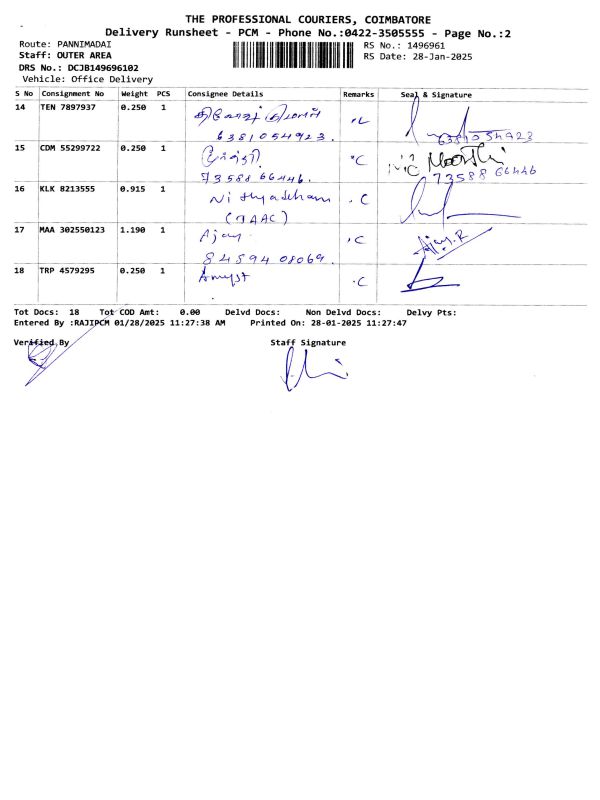 THE PROFESSIONAL COURIERS, COIMBATORE
Delivery Runsheet - PCM - Phone No.:0422-3505555 - Page No.:2
Route: PANNIMADAI
RS No.: 1496961
Staff: OUTER AREA
RS Date: 28-Jan-2025
DRS No.: DCJB149696102
Vehicle: Office Delivery
S No Consignment No Weight PCS Consignee Details Remarks Seal & Signature
14 TEN 7897937 0.250 1
6381054923. 6381054923
15 CDM 55299722 0.250 1 C Moorthi
73588 66446. 73588 66446
16 KLK 8213555 0.915 1 C
17 MAA 302550123 1.190 1 Ajay C Ajay.R
84594 08069
18 TRP 4579295 0.250 1 C
Tot Docs: 18 Tot COD Amt: 0.00 Delvd Docs: Non Delvd Docs: Delvy Pts:
Entered By :RAJIPCM 01/28/2025 11:27:38 AM Printed On: 28-01-2025 11:27:47
Verified By Staff Signature